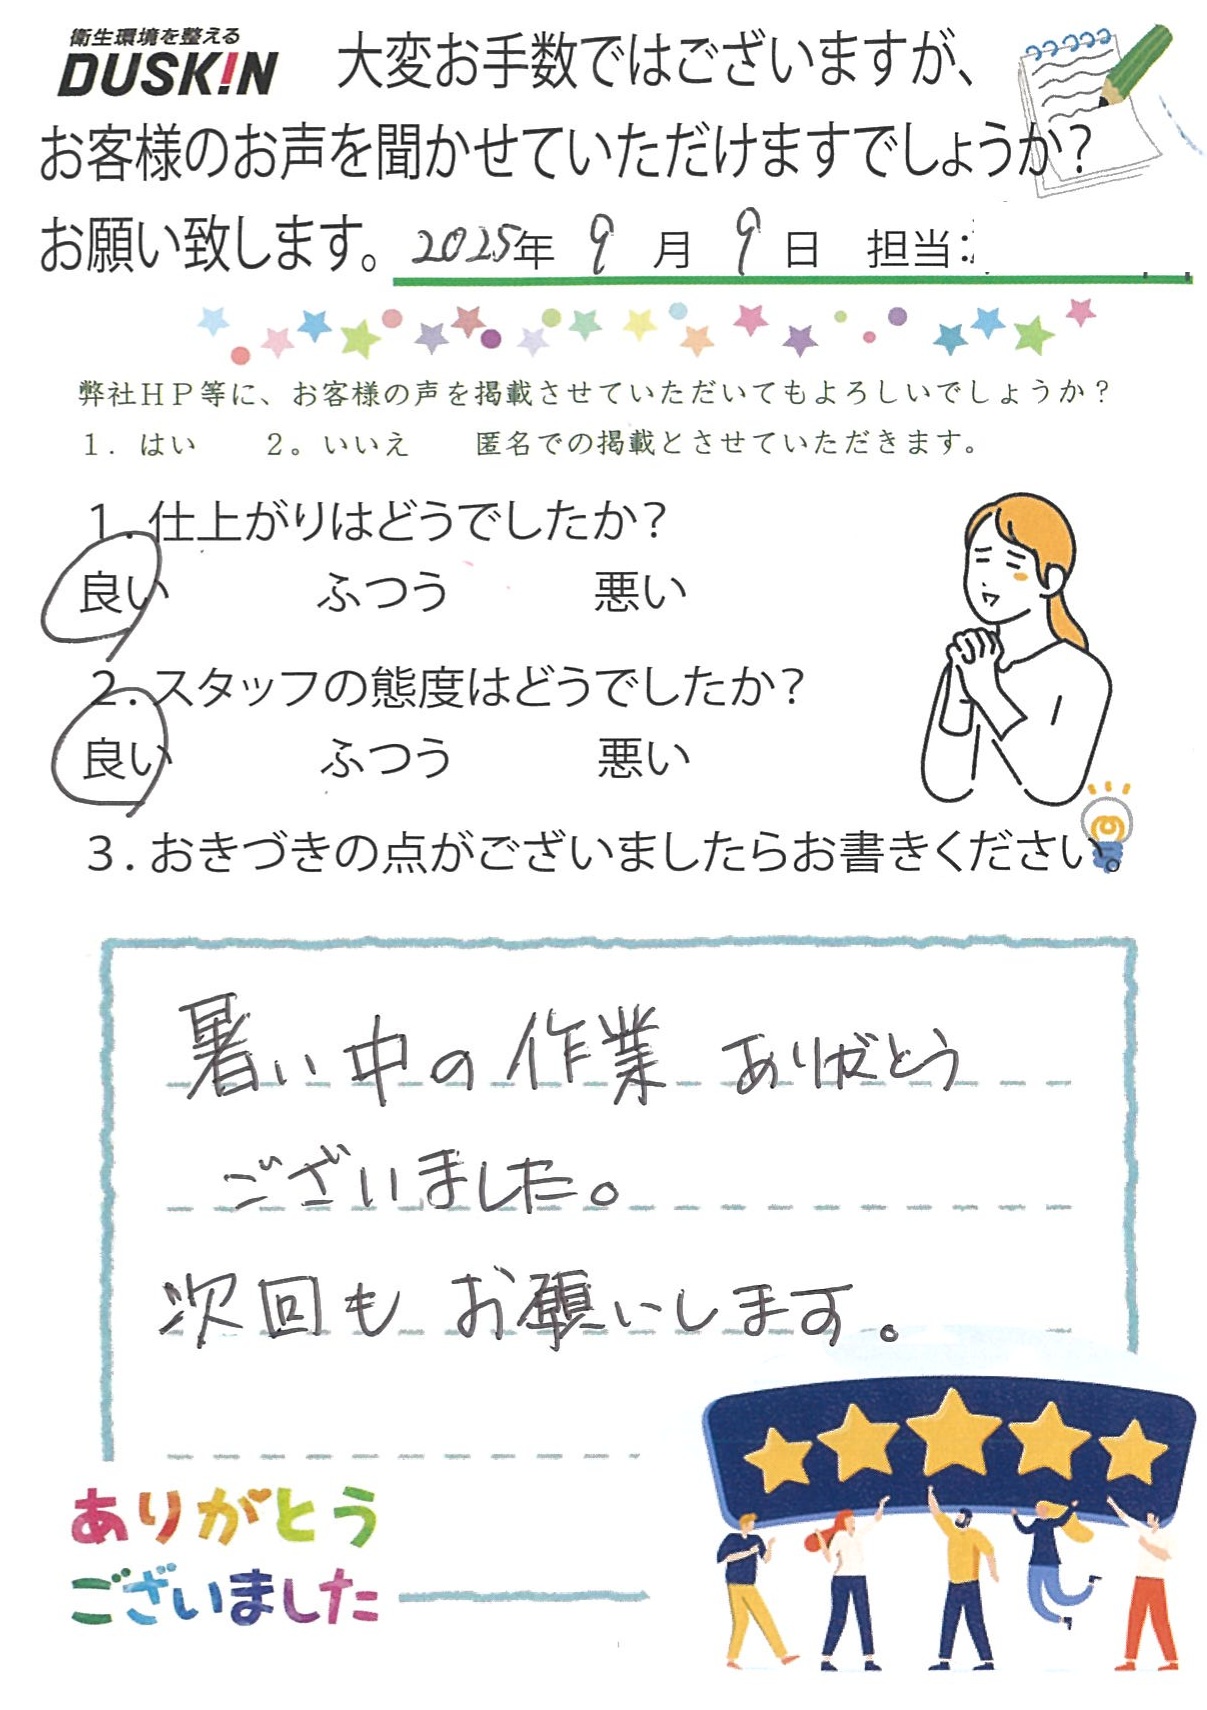 衛生環境を整える
DUSKIN 大変お手数ではございますが、
お客様のお声を聞かせていただけますでしょうか?
お願い致します。 2025年 9月 9日 担当:
弊社HP等に、お客様の声を掲載させていただいてもよろしいでしょうか?
1. はい 2。いいえ 匿名での掲載とさせていただきます。
1. 仕上がりはどうでしたか?
良い ふつう 悪い
2. スタッフの態度はどうでしたか?
良い ふつう 悪い
3. おきづきの点がございましたらお書きください。
暑い中の作業 ありがとう
ございました。
次回も お願いします。
ありがとう
ございました